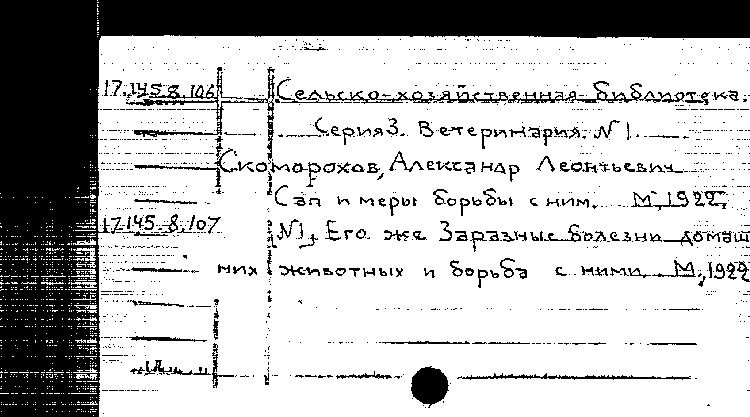 17.145.8.106 Сельско-хозяйственная библиотека.
Серия 3. Ветеринария. N 1.
Скоморохов, Александр Леонтьевич
Сап и меры борьбы с ним. М, 1922.
17.145.8.107 N1, Его же Заразные болезни домаш
них животных и борьба с ними. М, 1922